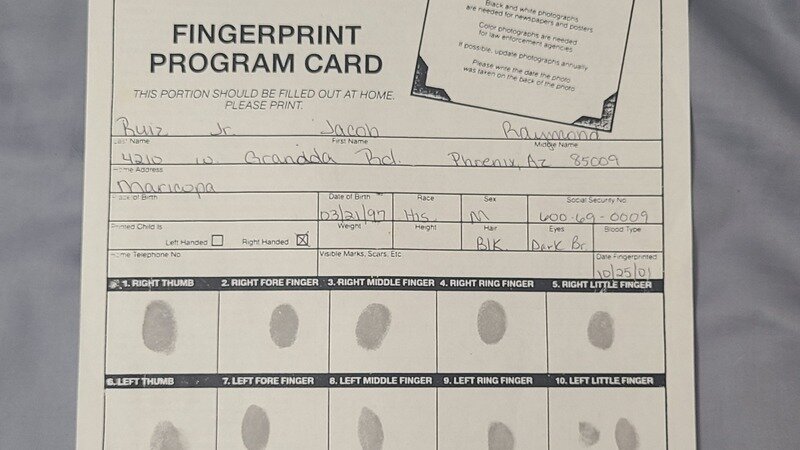 Black and white photographs
are needed for newspapers and posters
Color photographs are needed
for law enforcement agencies
If possible, update photographs annually
Please write the date the photo
was taken on the back of the photo
FINGERPRINT
PROGRAM CARD
THIS PORTION SHOULD BE FILLED OUT AT HOME.
PLEASE PRINT.
Ruiz Jr. Jacob Raymond
Last Name First Name Middle Name
4210 W. Grandda Rd. Phoenix, Az 85009
Home Address
Maricopa
Place of Birth Date of Birth Race Sex Social Security No.
03/21/97 His. M 600-69-0009
Printed Child Is Weight Height Hair Eyes Blood Type
Left Handed Right Handed X Blk. Dark Br.
Home Telephone No Visible Marks, Scars, Etc Date Fingerprinted
10/25/01
1. RIGHT THUMB 2. RIGHT FORE FINGER 3. RIGHT MIDDLE FINGER 4. RIGHT RING FINGER 5. RIGHT LITTLE FINGER
6. LEFT THUMB 7. LEFT FORE FINGER 8. LEFT MIDDLE FINGER 9. LEFT RING FINGER 10. LEFT LITTLE FINGER